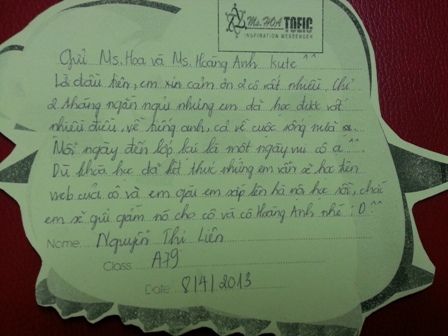 Ms. HOA TOEIC
INSPIRATION MESSENGER
Gửi Ms. Hoa và Ms. Hoàng Anh kute ^^
Lá đầu tiên, em xin cảm ơn 2 cô rất nhiều. Chỉ
2 tháng ngắn ngủi nhưng em đã học được rất
nhiều điều, về tiếng anh, cả về cuộc sống nữa ạ.
Mỗi ngày đến lớp lại là một ngày vui cô ạ ^^
Dù khóa học đã kết thúc nhưng em vẫn sẽ học trên
web của cô và em gái em sắp lên hà nội học rồi, chắc
em sẽ gửi gắm nó cho cô và cô Hoàng Anh nhé :D ^^
Name: Nguyễn Thị Liên
Class: A79
Date: 8/4/2013